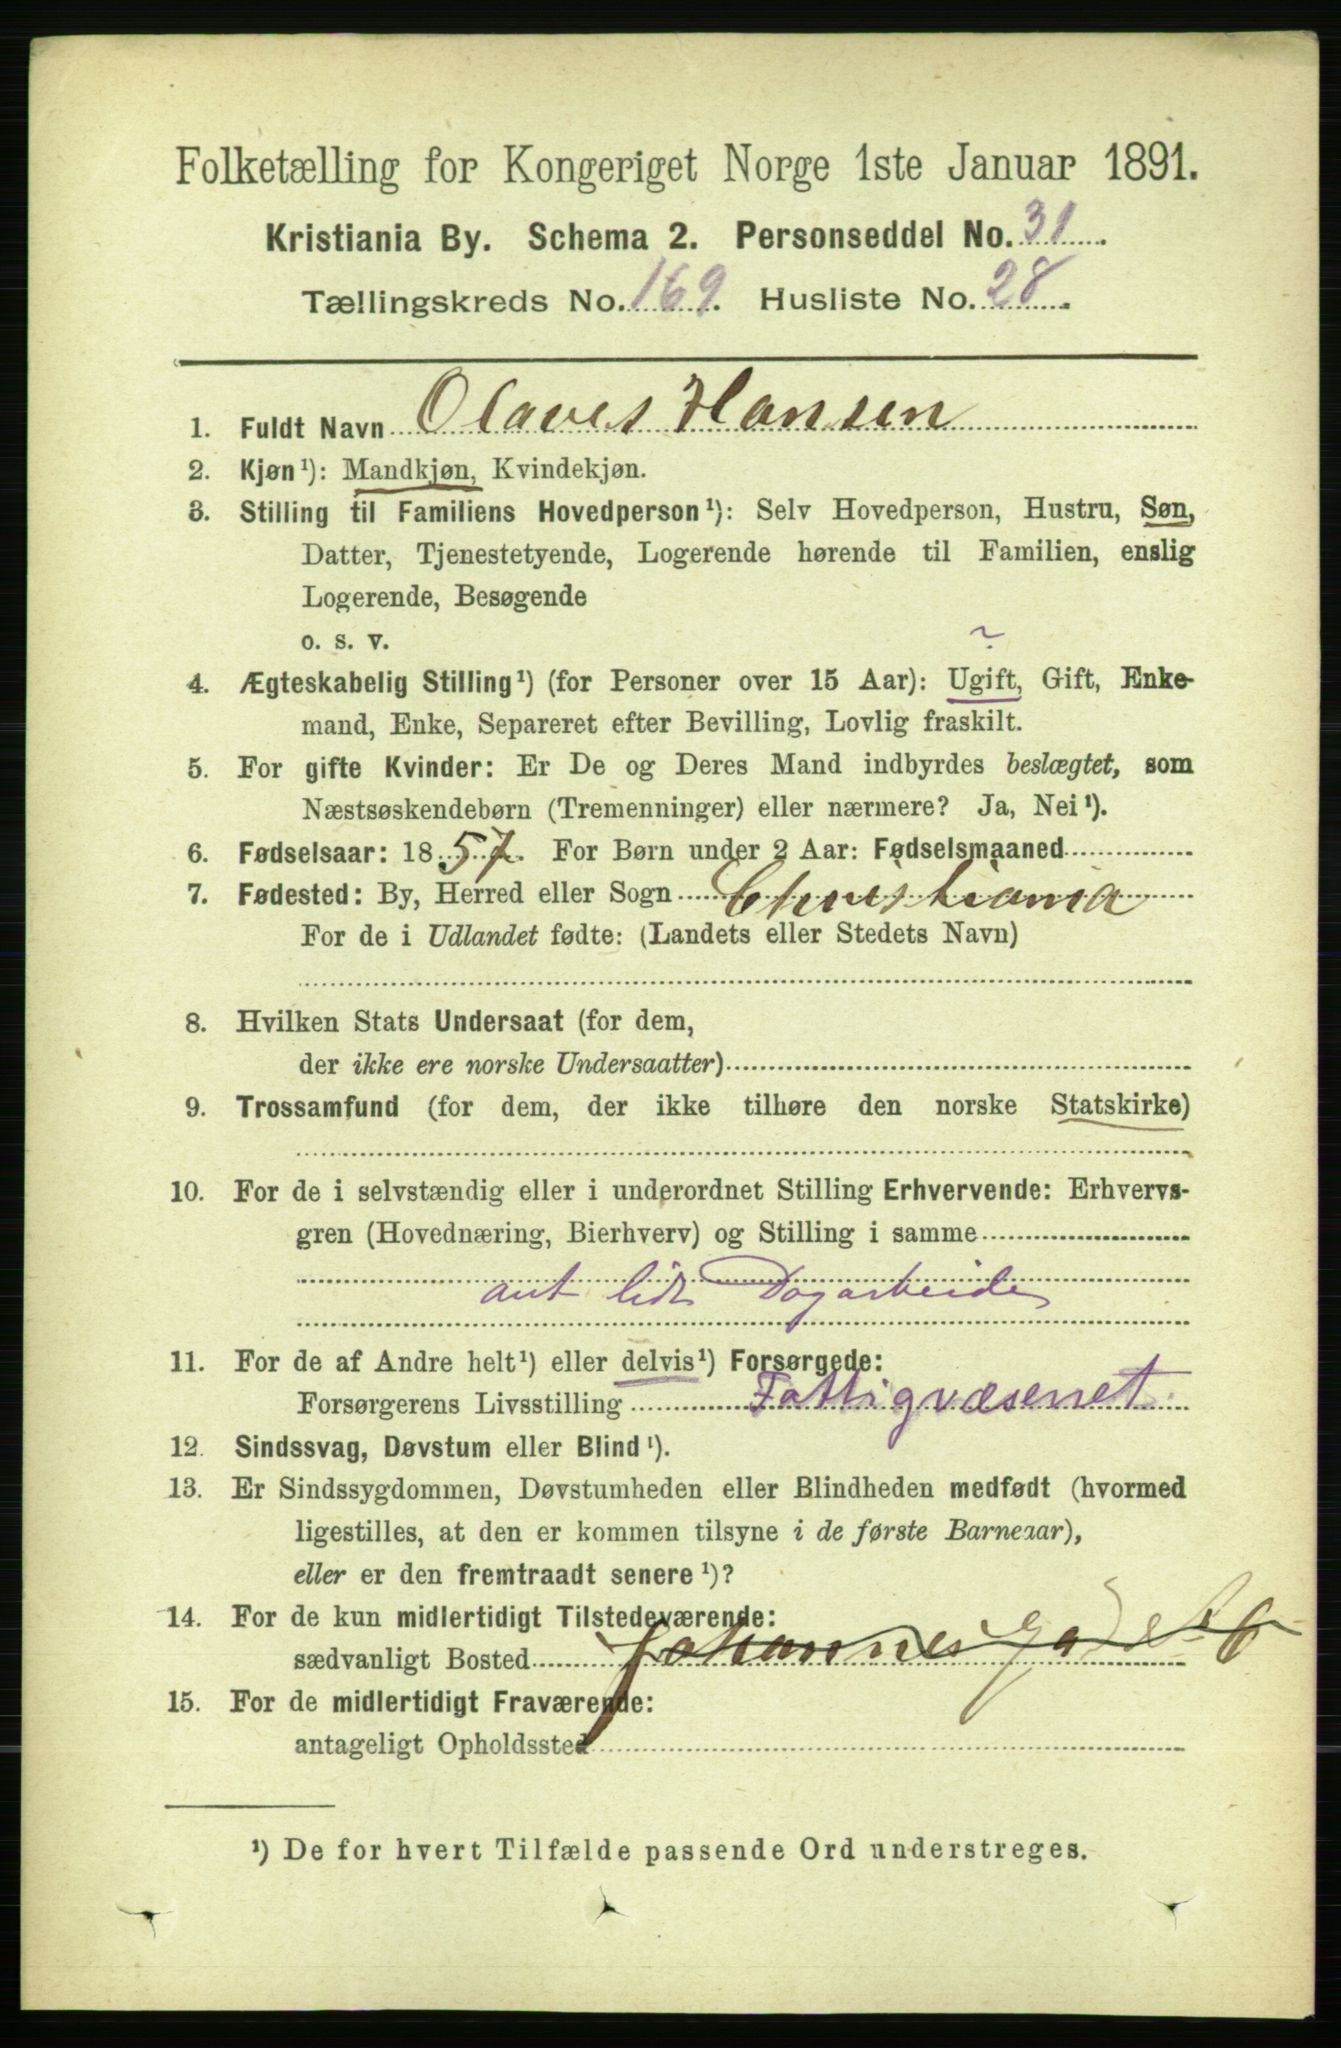 Folketælling for Kongeriget Norge 1ste Januar 1891.
Kristiania By. Schema 2. Personseddel No. 31.
Tællingskreds No. 169. Husliste No. 28.
1. Fuldt Navn Olaves Hansen
2. Kjøn¹): Mandkjøn, Kvindekjøn.
3. Stilling til Familiens Hovedperson¹): Selv Hovedperson, Hustru, Søn,
Datter, Tjenestetyende, Logerende hørende til Familien, enslig
Logerende, Besøgende
o. s. v.
?
4. Ægteskabelig Stilling¹) (for Personer over 15 Aar): Ugift, Gift, Enke-
mand, Enke, Separeret efter Bevilling, Lovlig fraskilt.
5. For gifte Kvinder: Er De og Deres Mand indbyrdes beslægtet, som
Næstsøskendebørn (Tremenninger) eller nærmere? Ja, Nei¹).
6. Fødselsaar: 1857. For Børn under 2 Aar: Fødselsmaaned
7. Fødested: By, Herred eller Sogn Christiania
For de i Udlandet fødte: (Landets eller Stedets Navn)
8. Hvilken Stats Undersaat (for dem,
der ikke ere norske Undersaatter)
9. Trossamfund (for dem, der ikke tilhøre den norske Statskirke)
10. For de i selvstændig eller i underordnet Stilling Erhvervende: Erhvervs-
gren (Hovednæring, Bierhverv) og Stilling i samme
ant lidt Dagarbeide
11. For de af Andre helt¹) eller delvis¹) Forsørgede:
Forsørgerens Livsstilling Fattigvæsenet
12. Sindssvag, Døvstum eller Blind¹).
13. Er Sindssygdommen, Døvstumheden eller Blindheden medfødt (hvormed
ligestilles, at den er kommen tilsyne i de første Barneaar),
eller er den fremtraadt senere¹)?
14. For de kun midlertidigt Tilstedeværende:
sædvanligt Bosted Johannes
15. For de midlertidigt Fraværende:
antageligt Opholdssted
¹) De for hvert Tilfælde passende Ord understreges.